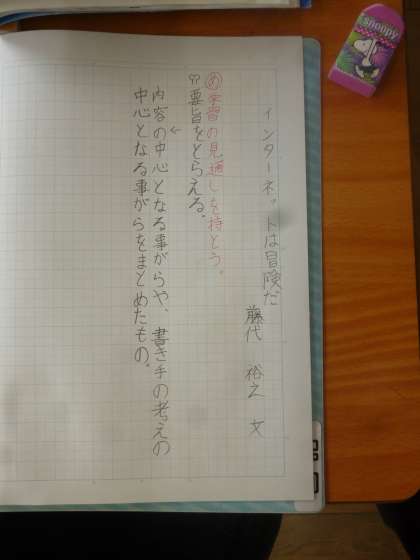 インターネットは冒険だ
藤代 裕之 文
め学習の見通しを持とう。
要旨をとらえる。
内容の中心となる事がらや、書き手の考えの
中心となる事がらをまとめたもの。
snoopy